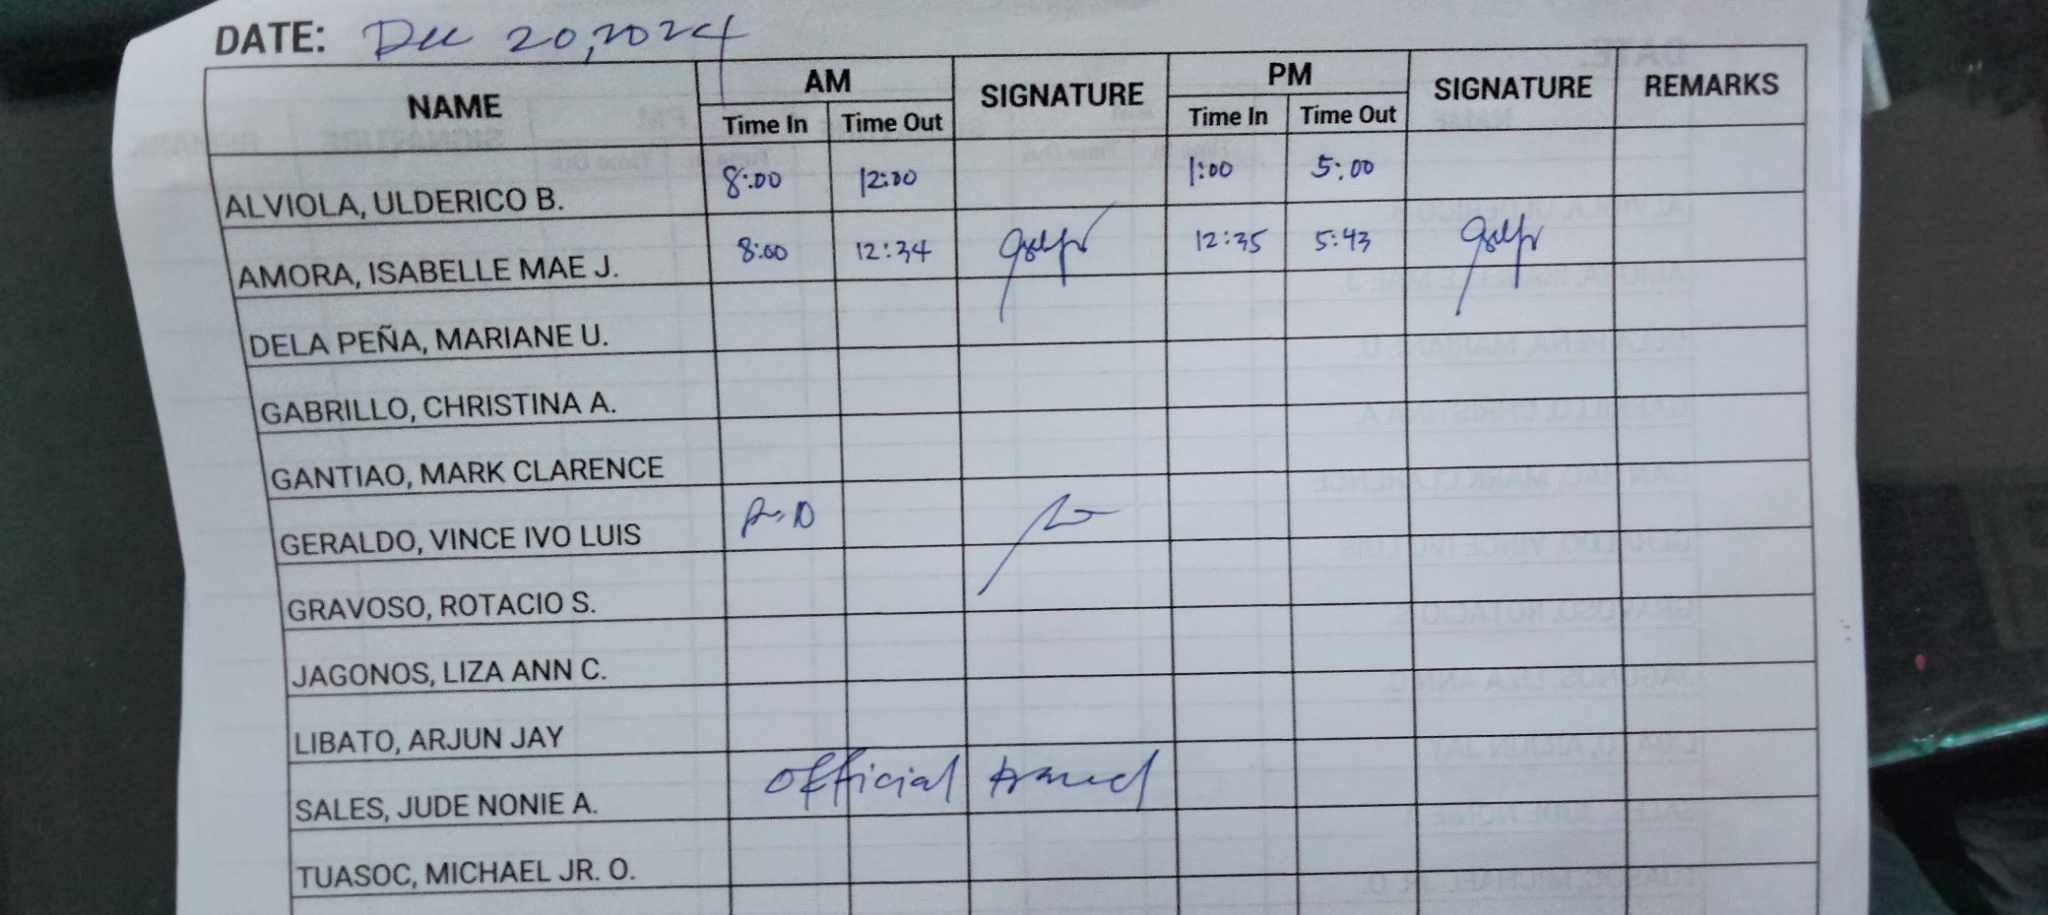 DATE: Dec 20, 2024
NAME AM SIGNATURE PM SIGNATURE REMARKS
Time In Time Out Time In Time Out
ALVIOLA, ULDERICO B. 8:00 12:00 1:00 5:00
AMORA, ISABELLE MAE J. 8:00 12:34 12:35 5:43
DELA PEÑA, MARIANE U.
GABRILLO, CHRISTINA A.
GANTIAO, MARK CLARENCE
GERALDO, VINCE IVO LUIS
GRAVOSO, ROTACIO S.
JAGONOS, LIZA ANN C.
LIBATO, ARJUN JAY
SALES, JUDE NONIE A. Official travel
TUASOC, MICHAEL JR. O.